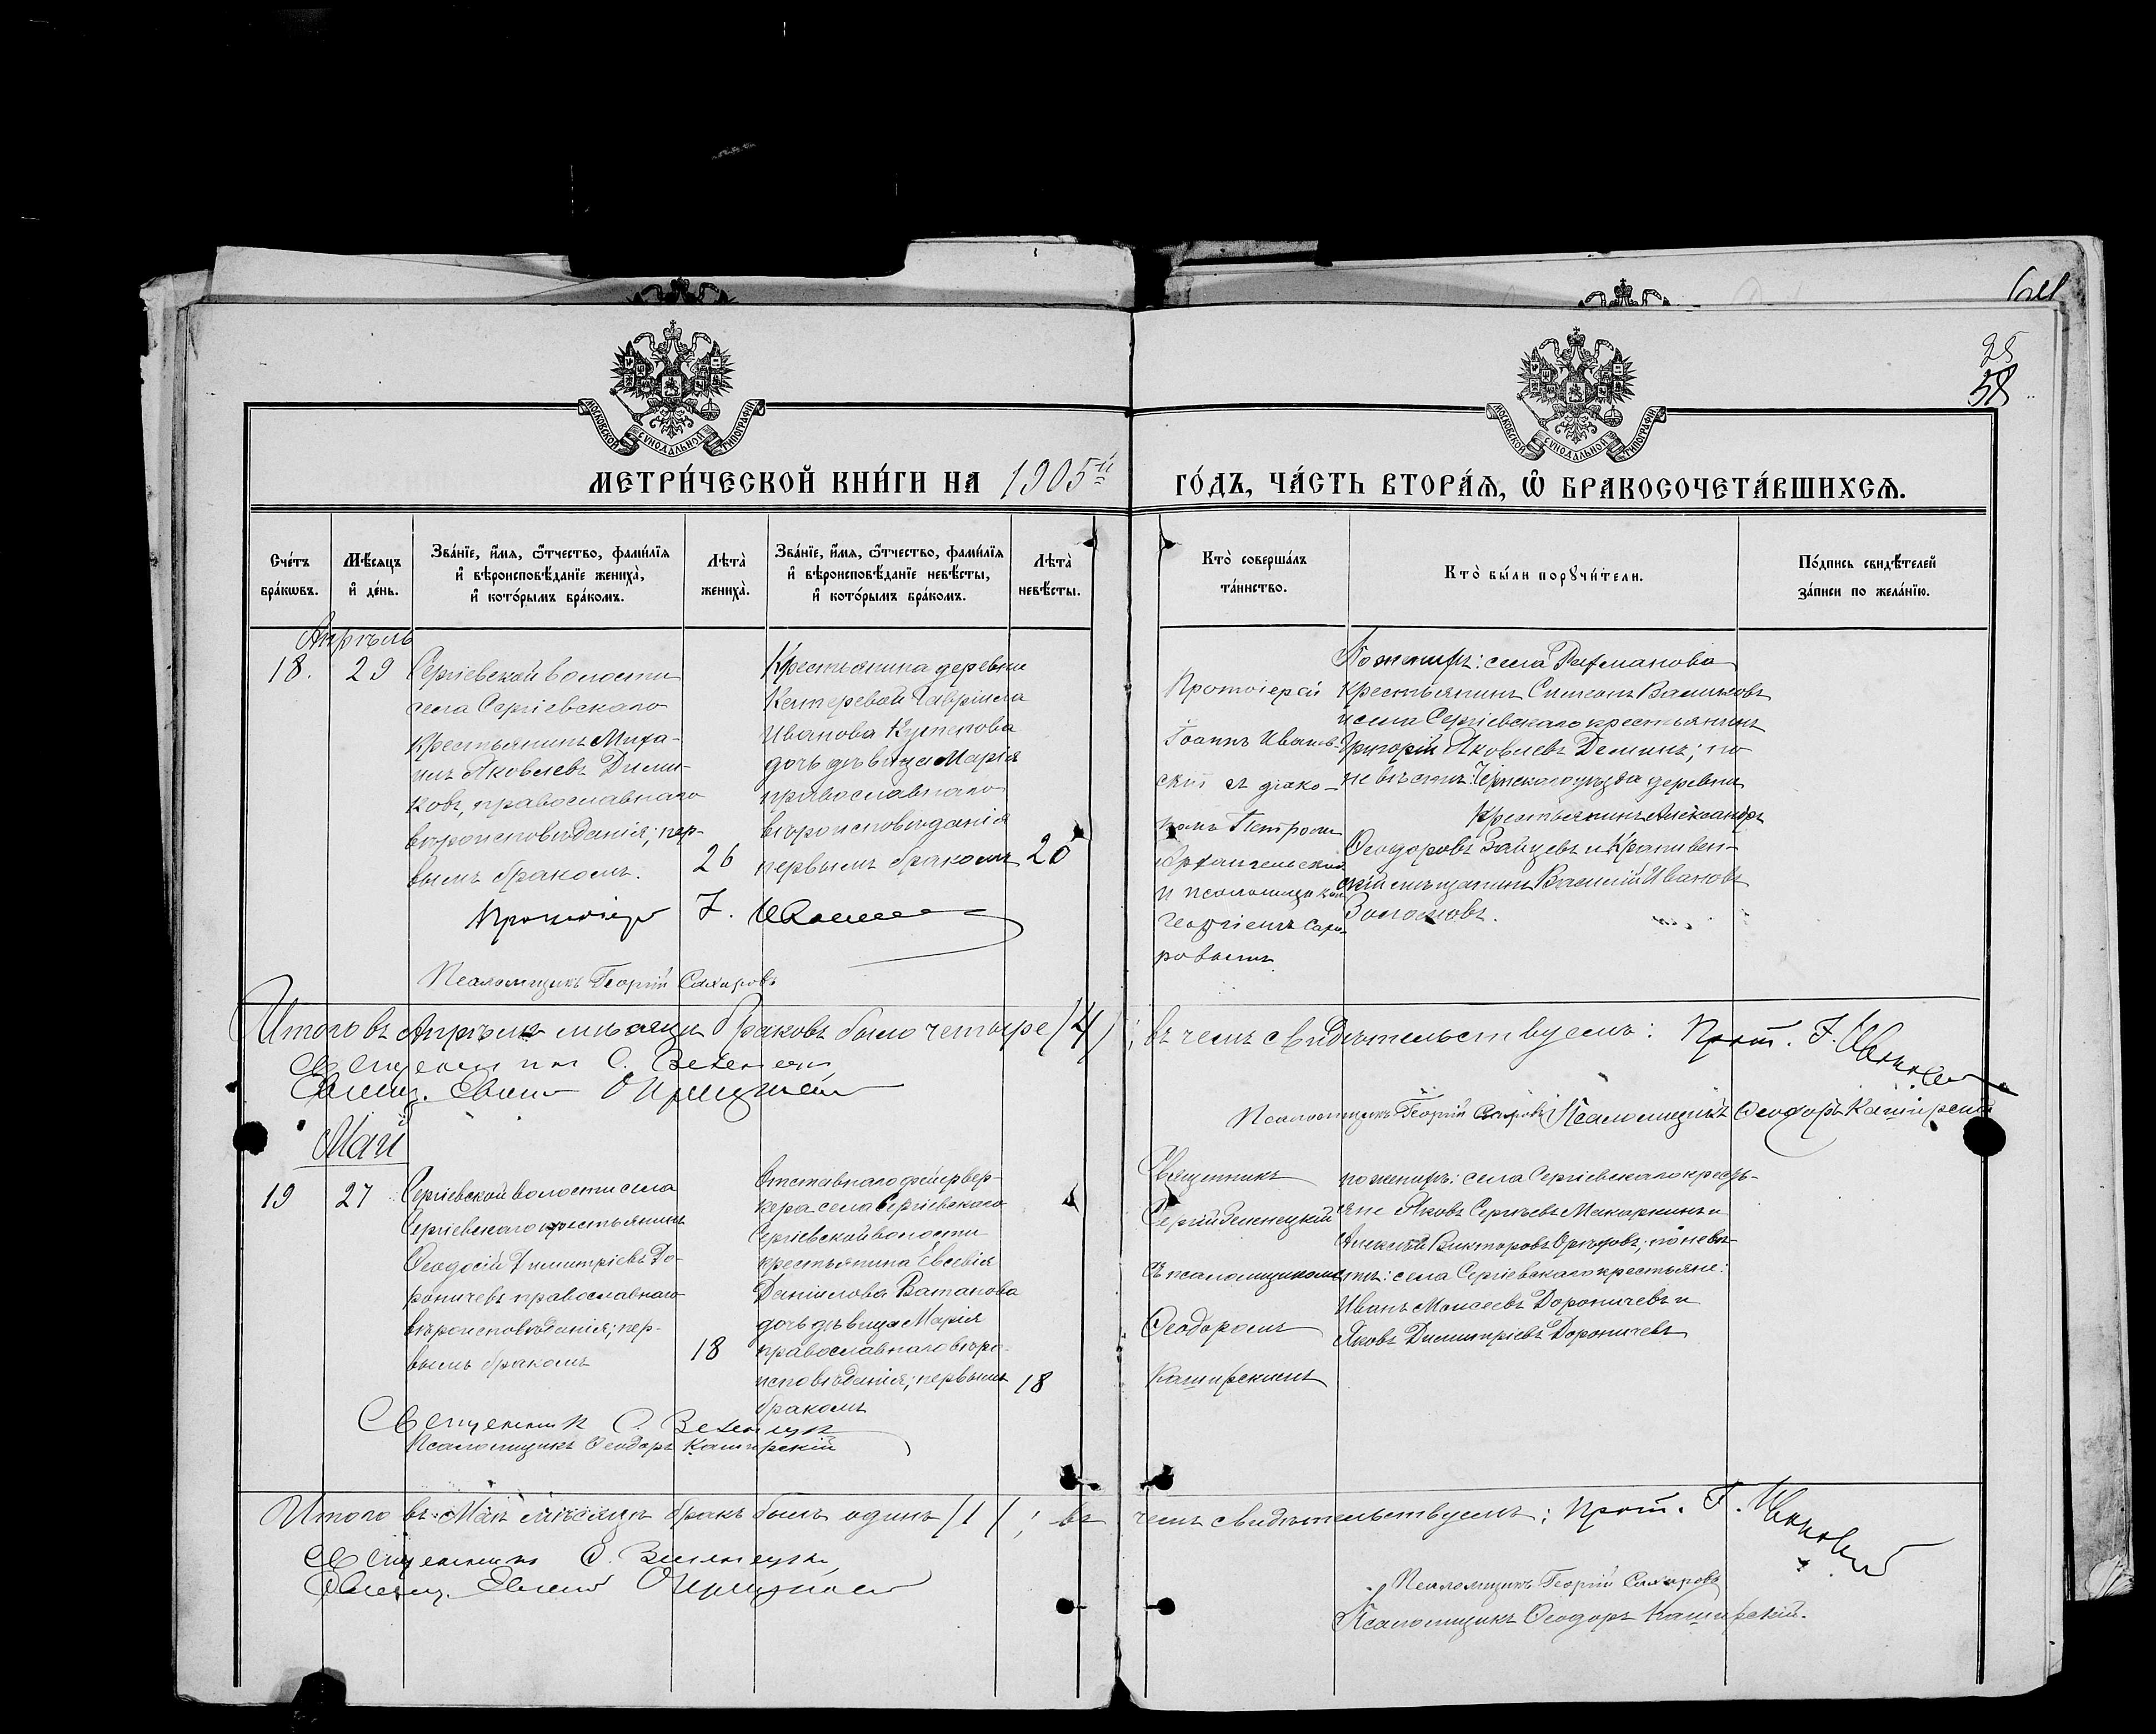 98
58
МОСКОВСКОЙ СѴНОДАЛЬНОЙ ТИПОГРАФІИ
МОСКОВСКОЙ СѴНОДАЛЬНОЙ ТИПОГРАФІИ
МЕТРИ́ЧЕСКОЙ КНИ́ГИ НА 1905й ГО́ДЪ, ЧА́СТЬ ВТОРА́Я, Ѡ҆ БРАКОСОЧЕТА́ВШИХСЯ.
Сче́тъ
бра́кѡвъ.
Мѣ́сяцъ
и҆ де́нь.
Зва́нїе, и҆́мя, ѻ҆́тчество, фамѝлїя
и҆ вѣроисповѣ́данїе жениха̀,
и҆ кото́рымъ бра́комъ.
Лѣта̀
жениха̀.
Зва́нїе, и҆́мя, ѻ҆́тчество, фамѝлїя
и҆ вѣроисповѣ́данїе невѣ́сты,
и҆ кото́рымъ бра́комъ.
Лѣта̀
невѣ́сты.
Кто̀ соверша́лъ
та́инство.
Кто̀ бы́ли порꙋчи́тели.
По́дпись свидѣ́телей
за́писи по жела́нїю.
Апрѣль
18.
29
Сергіевской волости
села Сергіевскаго
крестьянинъ Миха-
илъ Яковлевъ
православнаго
вѣроисповѣданія; пер-
вымъ бракомъ.
26
Крестьянина деревни
Гавріила
Иванова
дочь дѣвица Марія
православнаго
вѣроисповѣданія
первымъ бракомъ
20
Протоіерей
Іоаннъ Иванов-
скій съ діако-
номъ Петромъ
Архангельскимъ
и псаломщикомъ
Георгіемъ Саха-
ровымъ
По женихѣ: села Рахманова
крестьянинъ Симеонъ
и села Сергіевскаго крестьянинъ
Григорій Яковлевъ Деминъ; по
невѣстѣ: Чернскаго уѣзда деревни
крестьянинъ Александръ
Ѳеодоровъ Зайцевъ и Крапивен-
скій мѣщанинъ Василій Ивановъ
Протоіерей І. Ивановскій
Псаломщикъ Георгій Сахаровъ
Итого въ Апрѣлѣ мѣсяцѣ браковъ было четыре /4/; въ чемъ свидѣтельствуемъ: Прот. І. Ивановскій
Священникъ С. Зеленецкій
Псаломщикъ Георгій Сахаровъ Псаломщикъ Ѳеодоръ Каширскій
Май
19
27
Сергіевской волости села
Сергіевскаго крестьянинъ
Ѳеодосій Димитріевъ До-
роничевъ православнаго
вѣроисповѣданія; пер-
вымъ бракомъ
18
Отставнаго фейервер-
кера села Сергіевскаго
Сергіевской волости
крестьянина Евсевія
Даніилова Ватанова
дочь дѣвица Марія
православнаго вѣро-
исповѣданія; первымъ
бракомъ
18
Священникъ
Сергій Зеленецкій
съ псаломщикомъ
Ѳеодоромъ
Каширскимъ
по женихѣ: села Сергіевскаго кресть-
яне Яковъ Сергѣевъ Макаркинъ и
Алексѣй Викторовъ Орѣховъ; по невѣ-
стѣ: села Сергіевскаго крестьяне:
Иванъ Моисеевъ Дороничевъ и
Яковъ Димитріевъ Дороничевъ
Священникъ С. Зеленецкій
Псаломщикъ Ѳеодоръ Каширскій
Итого въ Маѣ мѣсяцѣ бракъ былъ одинъ /1/; въ чемъ свидѣтельствуемъ: Прот. І. Ивановскій
Священникъ С. Зеленецкій
Псаломщикъ Георгій Сахаровъ
Псаломщикъ Ѳеодоръ Каширскій.